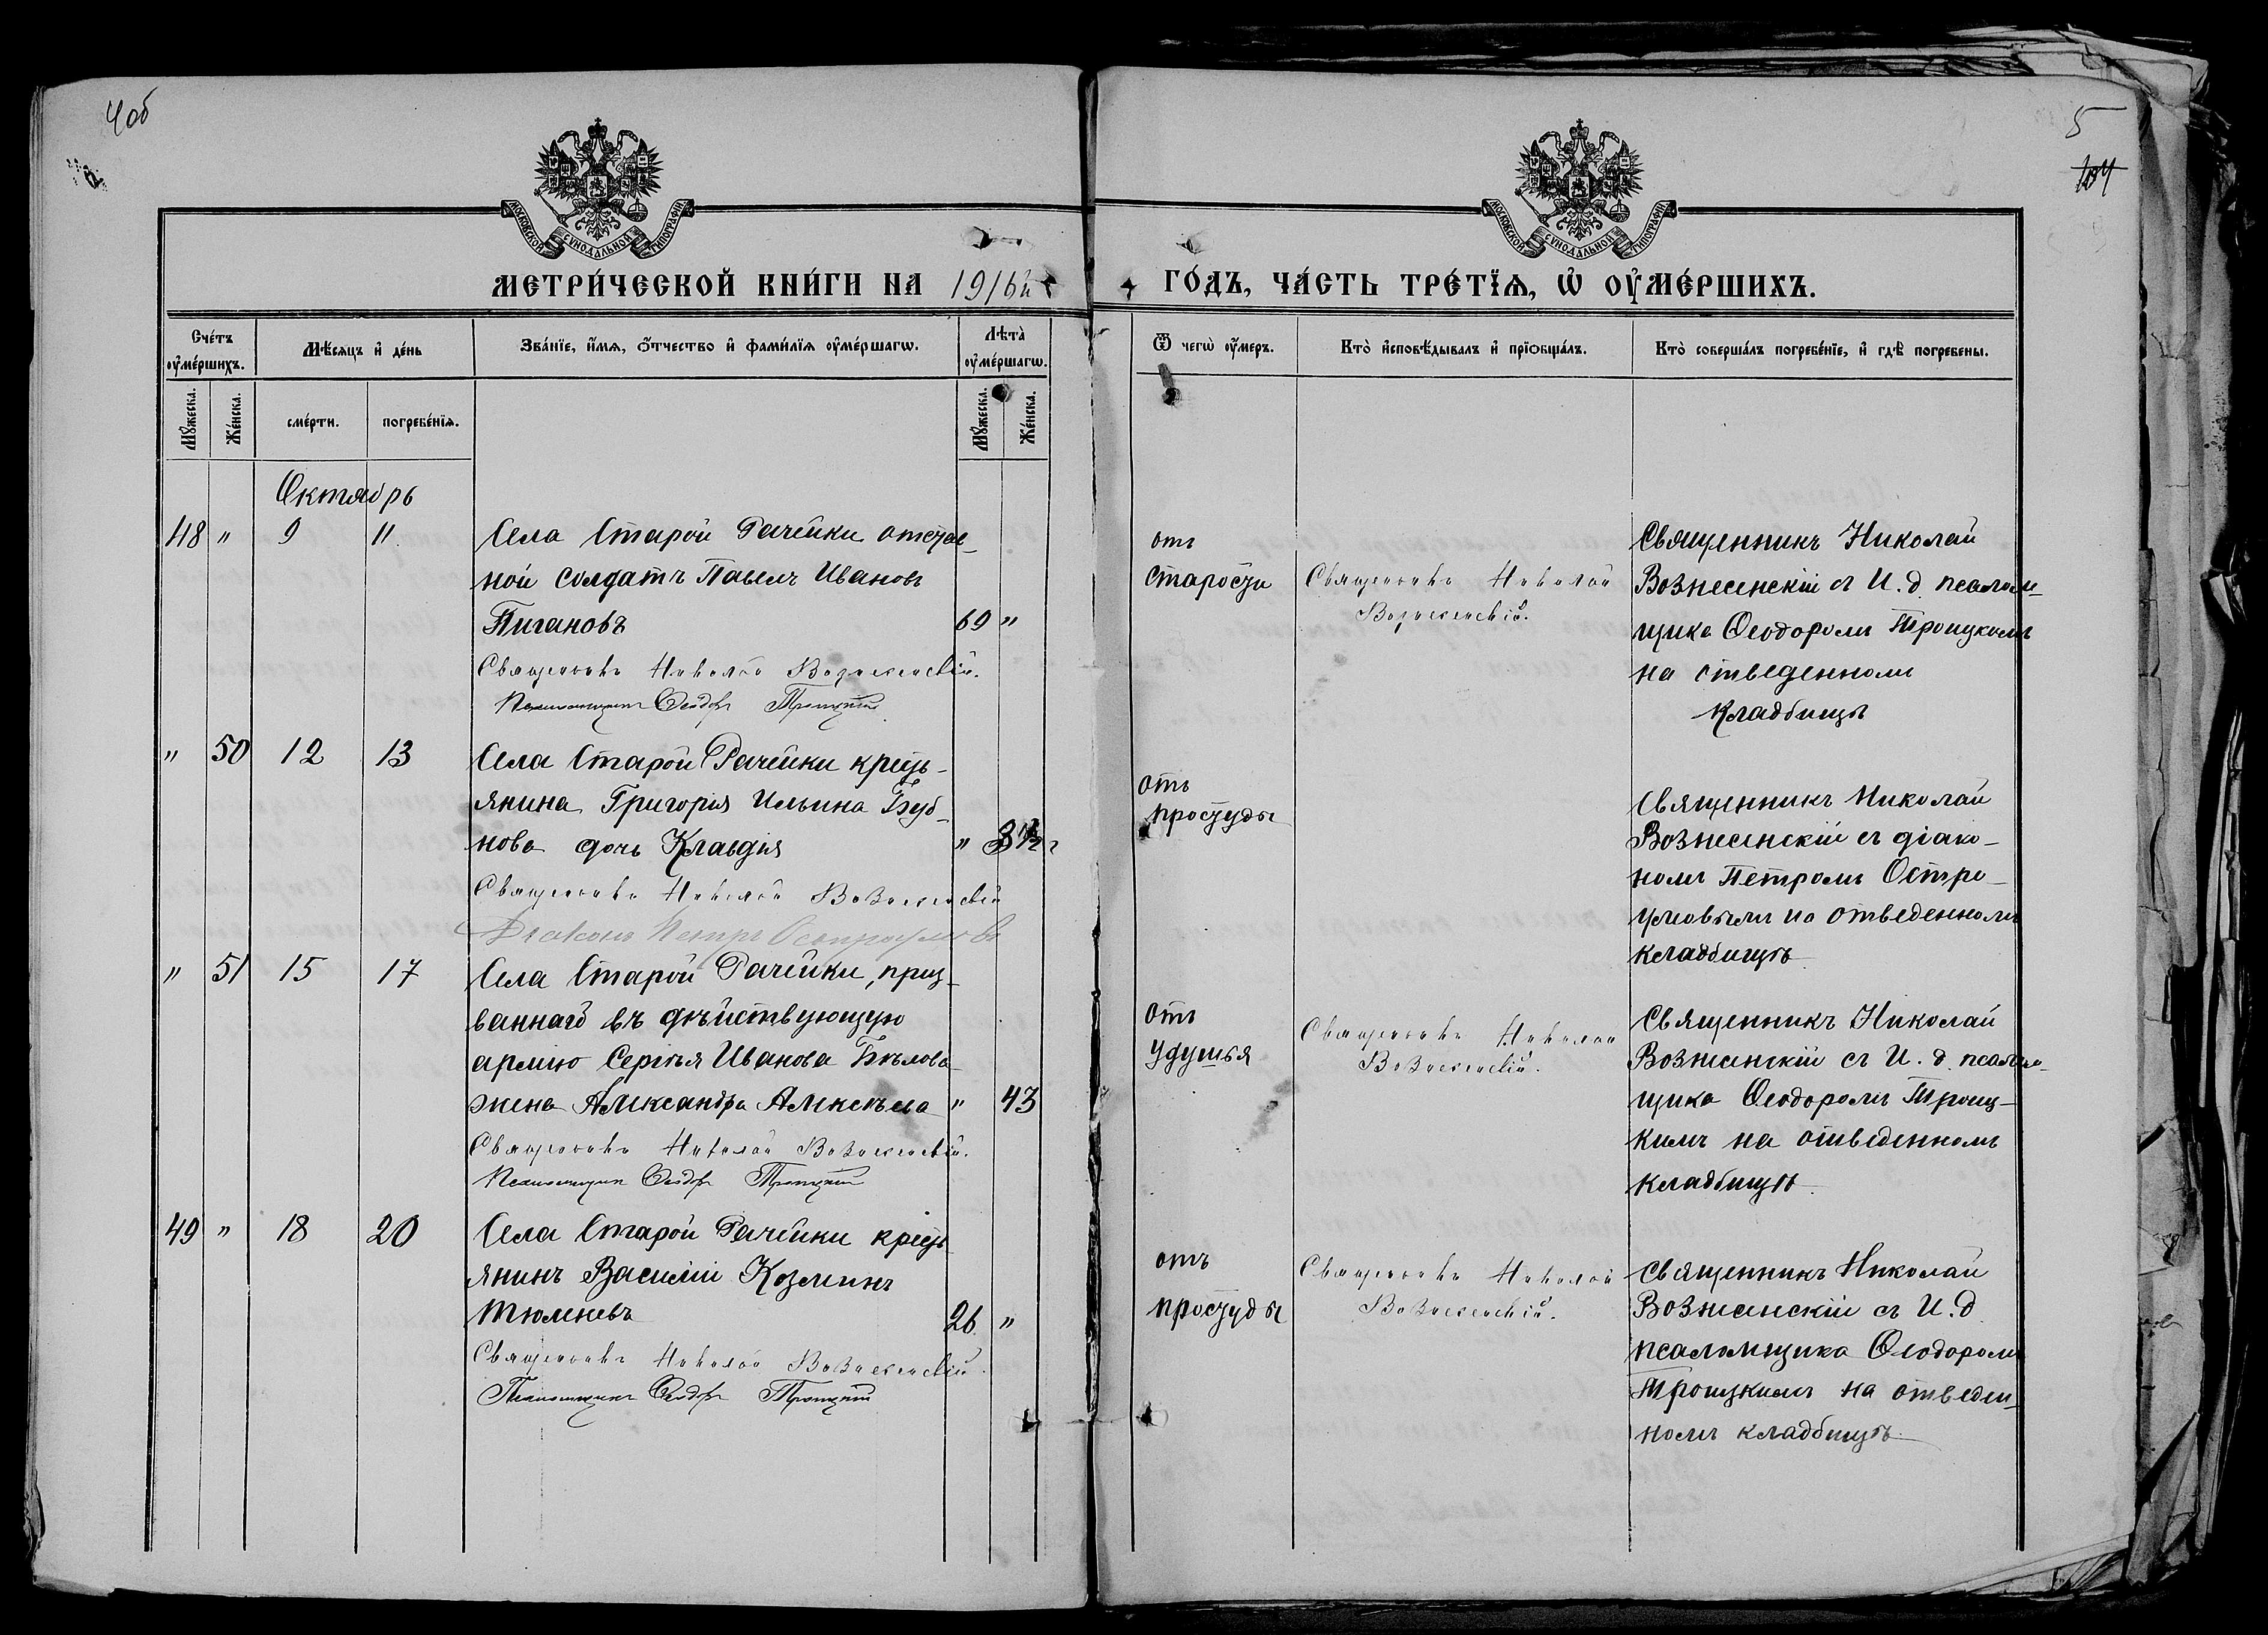 4 об
5
134
МОСКОВСКОЙ СѴНОДАЛЬНОЙ ТИПОГРАФІИ
МОСКОВСКОЙ СѴНОДАЛЬНОЙ ТИПОГРАФІИ
МЕТРИ́ЧЕСКОЙ КНИ́ГИ НА 1916й
ГО́ДЪ, ЧА́СТЬ ТРЕ́ТЇѦ, Ѡ҆ ОУ҆МЕ́РШИХЪ.
Сче́тъ оу҆ме́ршихъ.
Мѣ́сѧцъ и҆ де́нь
Зва́нїе, и҆́мѧ, ѻ҆́тчество и҆ фами́лїѧ оу҆ме́ршагѡ.
Лѣта̀ оу҆ме́ршагѡ.
Ѿ чегѡ̀ оу҆́меръ.
Кто̀ и҆сповѣ́дывалъ и҆ прїѡбща́лъ.
Кто̀ соверша́лъ погребе́нїе, и҆ гдѣ̀ погребены.
Мꙋ́жеска.
Же́нска.
сме́рти.
погребе́нїѧ.
Мꙋ́жеска.
Же́нска.
Октябрь
48 " 9 11
Села Старой Рачейки отстав-
ной солдатъ Павелъ Ивановъ
Пигановъ 69 "
Священникъ Николай Вознесенскій.
Псаломщикъ Ѳеодоръ Троицкій
отъ
старости
Священникъ Николай
Вознесенскій.
Священникъ Николай
Вознесенскій съ И. д. псалом-
щика Ѳеодоромъ Троицкимъ
на отведенномъ
кладбищѣ
" 50 12 13
Села Старой Рачейки кресть-
янина Григорія Ильина Буб-
нова дочь Клавдія " 3 1/2 г
Священникъ Николай Вознесенскій
Діаконъ Петръ Остроумовъ
отъ
простуды
Священникъ Николай
Вознесенскій съ діако-
номъ Петромъ Остро-
умовымъ на отведенномъ
кладбищѣ
" 51 15 17
Села Старой Рачейки, приз-
ваннаго въ дѣйствующую
армію Сергѣя Иванова Бѣлова
жена Александра Алексѣева " 43
Священникъ Николай Вознесенскій.
Псаломщикъ Ѳеодоръ Троицкій
отъ
удушья
Священникъ Николай
Вознесенскій.
Священникъ Николай
Вознесенскій съ И. д. псалом-
щика Ѳеодоромъ Троиц-
кимъ на отведенномъ
кладбищѣ.
49 " 18 20
Села Старой Рачейки кресть
янинъ Василій Козминъ
Тюленевъ 26 "
Священникъ Николай Вознесенскій.
Псаломщикъ Ѳеодоръ Троицкій
отъ
простуды
Священникъ Николай
Вознесенскій.
Священникъ Николай
Вознесенскій съ И. д.
псаломщика Ѳеодоромъ
Троицкимъ на отведен-
номъ кладбищѣ